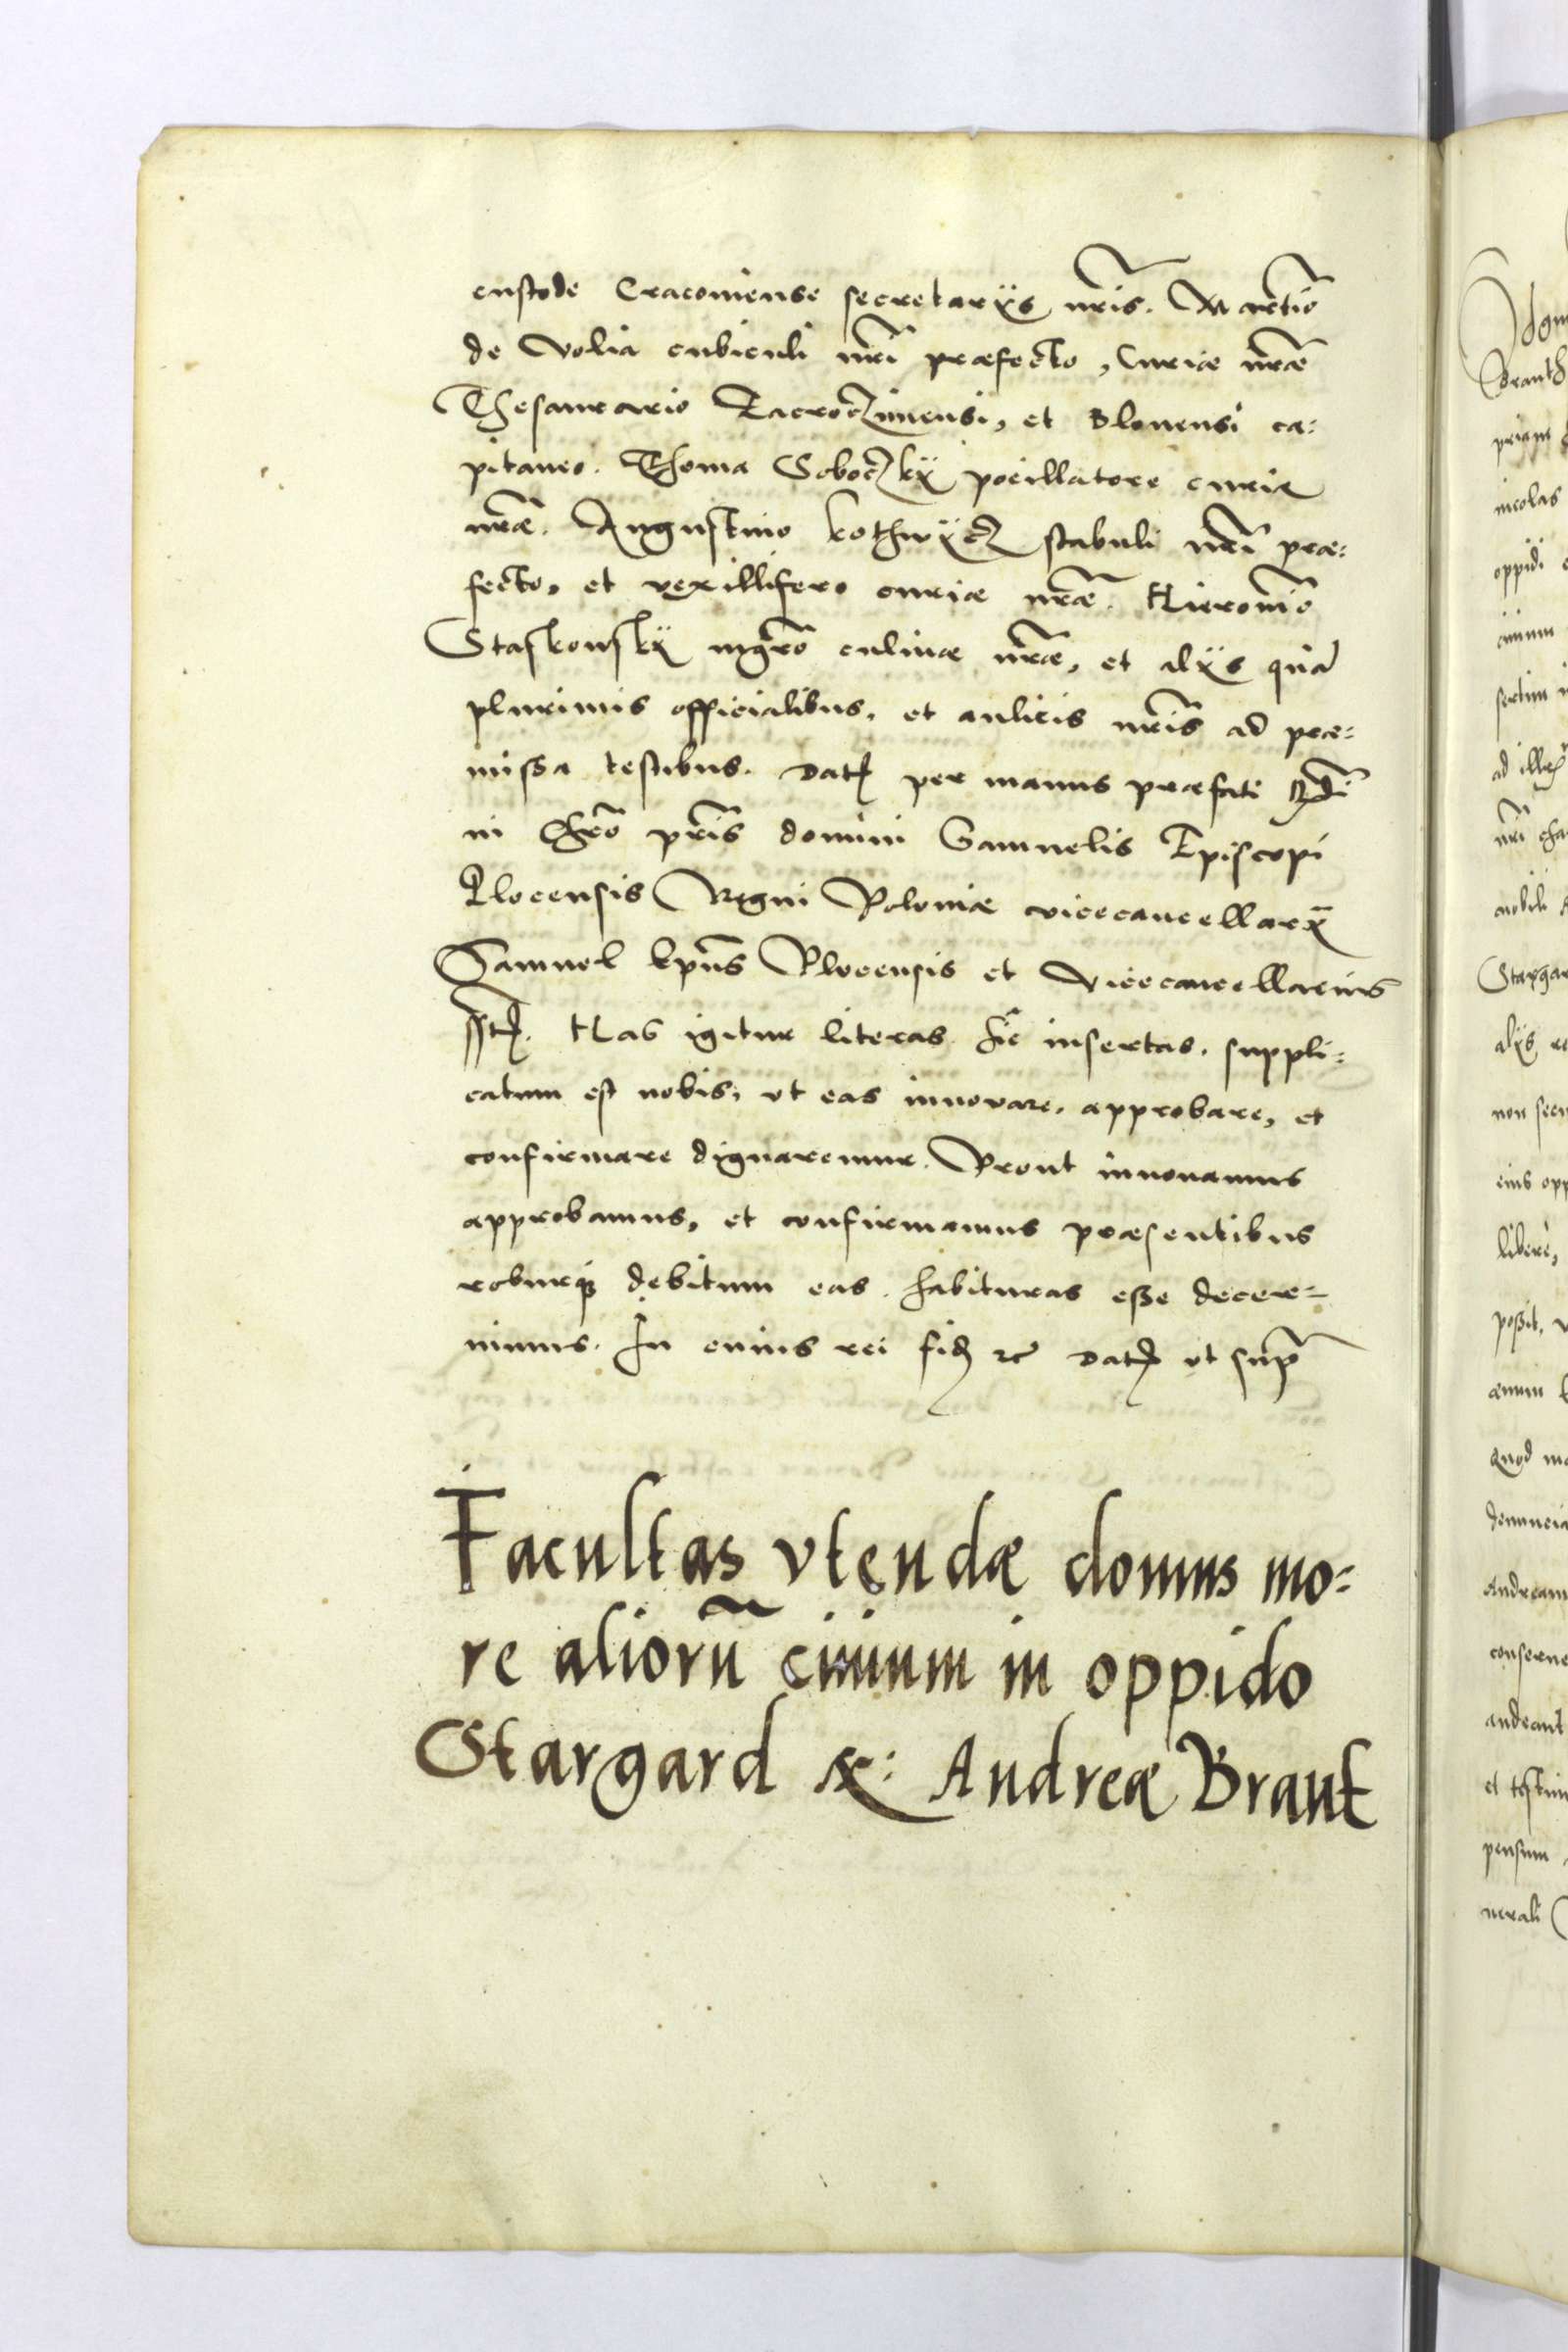 custode Cracoviense secretarÿs nr̃is. Martio
de Volia cubiculi nr̃i præfecto, Curiæ nr̃æ
Thesaurario Zacroczimensi, et Blonensi ca:
pitaneo. Thoma Soboczkÿ pocillatore curiæ
nr̃æ. Augustino kothwÿcz stabuli nr̃i præ:
fecto, et vexillifero curiæ nr̃æ. Hieronimo
Staskowskÿ mgr̃o culinæ nr̃æ, et alÿs quã
plurimis officialibus, et aulicis nr̃is ad præ:
missa testibus. Dat per manus præfati Rdi
in Chr̃o pr̃is domini Samuelis Episcopi
Plocensis Regni Poloniæ vicecancellarÿ
Samuel Ep̃us Plocensis et Vicecancellarius
sst. Has igitur literas hic insertas, suppli:
catum est nobis, vt eas innovare, approbare, et
confirmare dignaremur. Prout innovamus
approbamus, et confirmamus præsentibus
roburq debitum eas habituras esse decer=
nimus. In cuius rei fid etc Dat vt supr
Facultas vtendæ domus mo:
re aliorũ ciuium in oppido
Stargard &: Andreæ Brant
Brant
nicolas
oppidi
ciuium
sertim
nr̃i
nobili
Stargar
alÿs
non
eius opp
libere,
possit,
Quod
denuncia
Andream
conserve
audeant
et
pensum
nerali